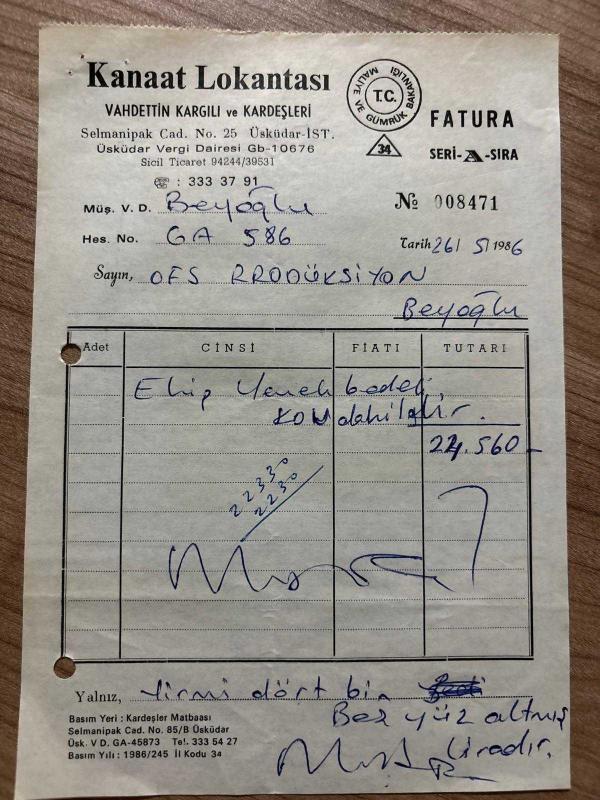 Kanaat Lokantası
VAHDETTİN KARGILI ve KARDEŞLERİ
Selmanipak Cad. No. 25 Üsküdar-İST.
Üsküdar Vergi Dairesi Gb-10676
Sicil Ticaret 94244/39531
☎ : 333 37 91
MALİYE VE GÜMRÜK BAKANLIĞI
T.C.
34
FATURA
SERİ-A-SIRA
Müş. V. D. Beyoğlu
№ 008471
Hes. No. GA 586
Tarih 26/5/1986
Sayın, OFS PRODÜKSİYON
Beyoğlu
Adet CİNSİ FİATI TUTARI
Ekip Yemek bedeli
KDV dahildir.
24.560-
22330
2230
Yalnız, Yirmi dört bin
Beş yüz altmış
liradır.
Basım Yeri : Kardeşler Matbaası
Selmanipak Cad. No. 85/B Üsküdar
Üsk. V D. GA-45873 Tel. 333 54 27
Basım Yılı : 1986/245 İl Kodu 34